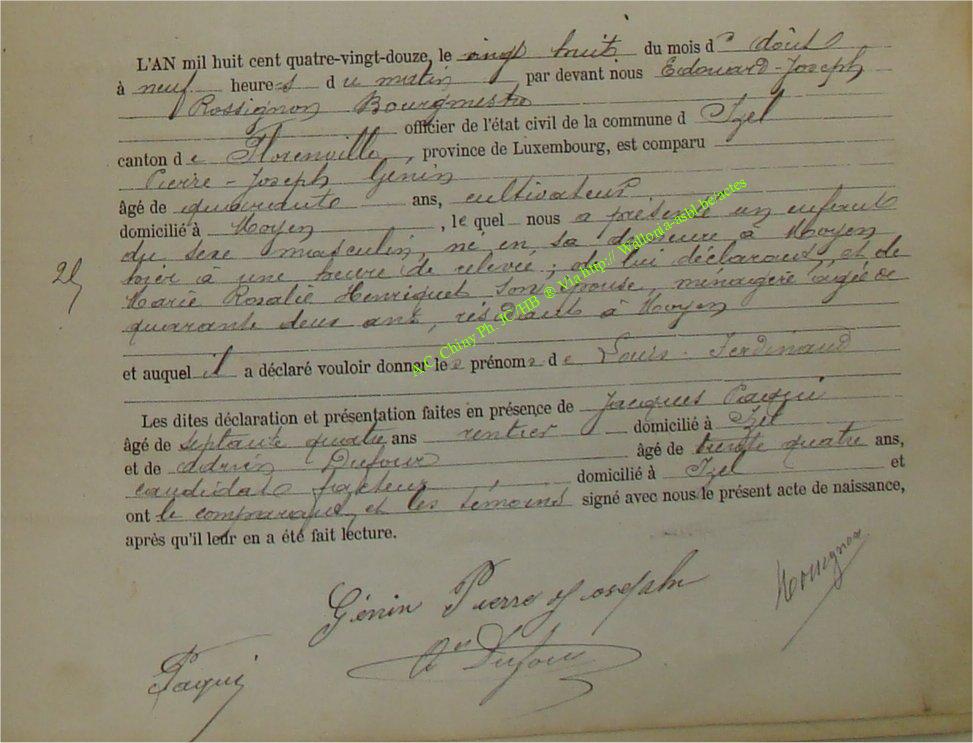 L'AN mil huit cent quatre-vingt-douze, le vingt huit du mois d'août
à neuf heures du matin, par devant nous Edouard-Joseph
Rossignon Bourgmestre
officier de l'état civil de la commune d Izel
canton de Florenville, province de Luxembourg, est comparu
Pierre-Joseph Génin
âgé de quarante ans, cultivateur
domicilié à Moyen, lequel nous a présenté un enfant
du sexe masculin, né en sa demeure à Moyen
hier à une heure de relevée, de lui déclarant, et de
Marie Rosalie Henriquet son épouse, ménagère âgée de
quarante deux ans, résidant à Moyen
et auquel il a déclaré vouloir donner les prénoms de Louis-Ferdinand
Les dites déclaration et présentation faites en présence de Jacques Paqui
âgé de septante quatre ans rentier domicilié à Izel
et de Adrien Dufour âgé de trente quatre ans,
candidat facteur domicilié à Izel et
ont le comparant et les témoins signé avec nous le présent acte de naissance,
après qu'il leur en a été fait lecture.
Génin Pierre Joseph
Rossignon
Paqui
Aen Dufour
A.C. Chiny Ph. JC/HB ® Via http:// Wallonia-asbl-be/actes